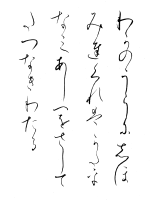 わかのうらに しほ
みちくれは かたを
なみ あしへをさして
たつなきわたる